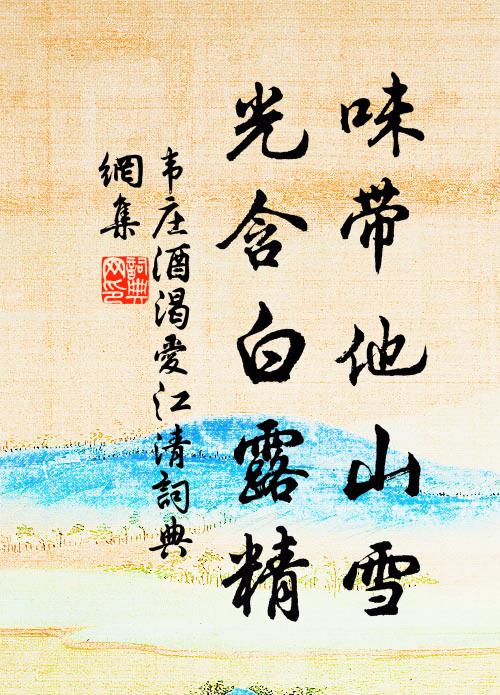 味带他山雪
光含白露精
韦庄酒渴爱江清詞典
網集
詞典网印